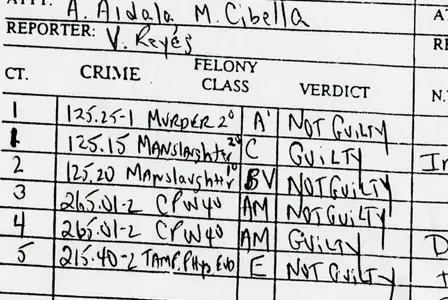 ATTY: A. Aidala M. Cibella
REPORTER: V. Reyes
CT. CRIME FELONY CLASS VERDICT
1 125.25-1 MURDER 2° A' NOT GUILTY
1 125.15 MANslaughter 2° C GUILTY
2 125.20 MANslaughter 1° BV NOT GUILTY
3 265.01-2 CPW 4° AM NOT GUILTY
4 265.01-2 CPW 4° AM GUILTY
5 215.40-2 TAMP. Phys EVD E NOT GUILTY